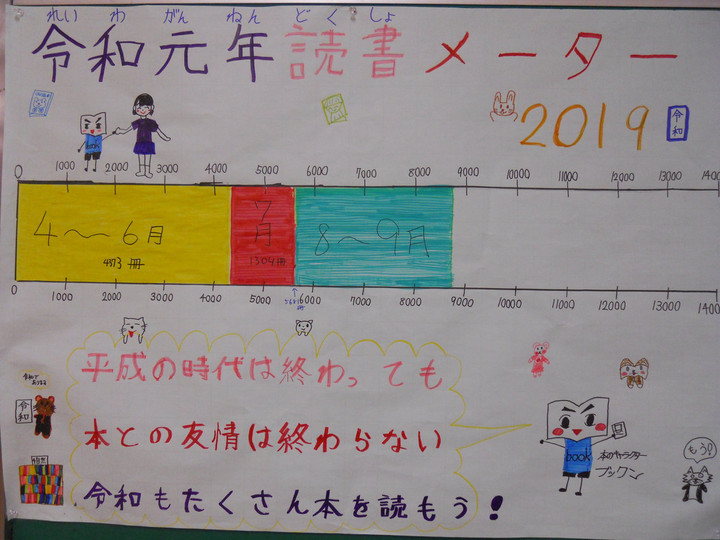 れいわがんねんどくしょ
令和元年読書メーター
2019
令和
book
0 1000 2000 3000 4000 5000 6000 7000 8000 9000 10000 11000 12000 13000 1400
4〜6月
7月
8〜9月
4373冊
1304冊
0 1000 2000 3000 4000 5000 6000 7000 8000 9000 10000 11000 12000 13000 1400
平成の時代は終わっても
本との友情は終わらない
令和もたくさん本を読もう!
令和
book
本のキャラクター
ブックン
もう!